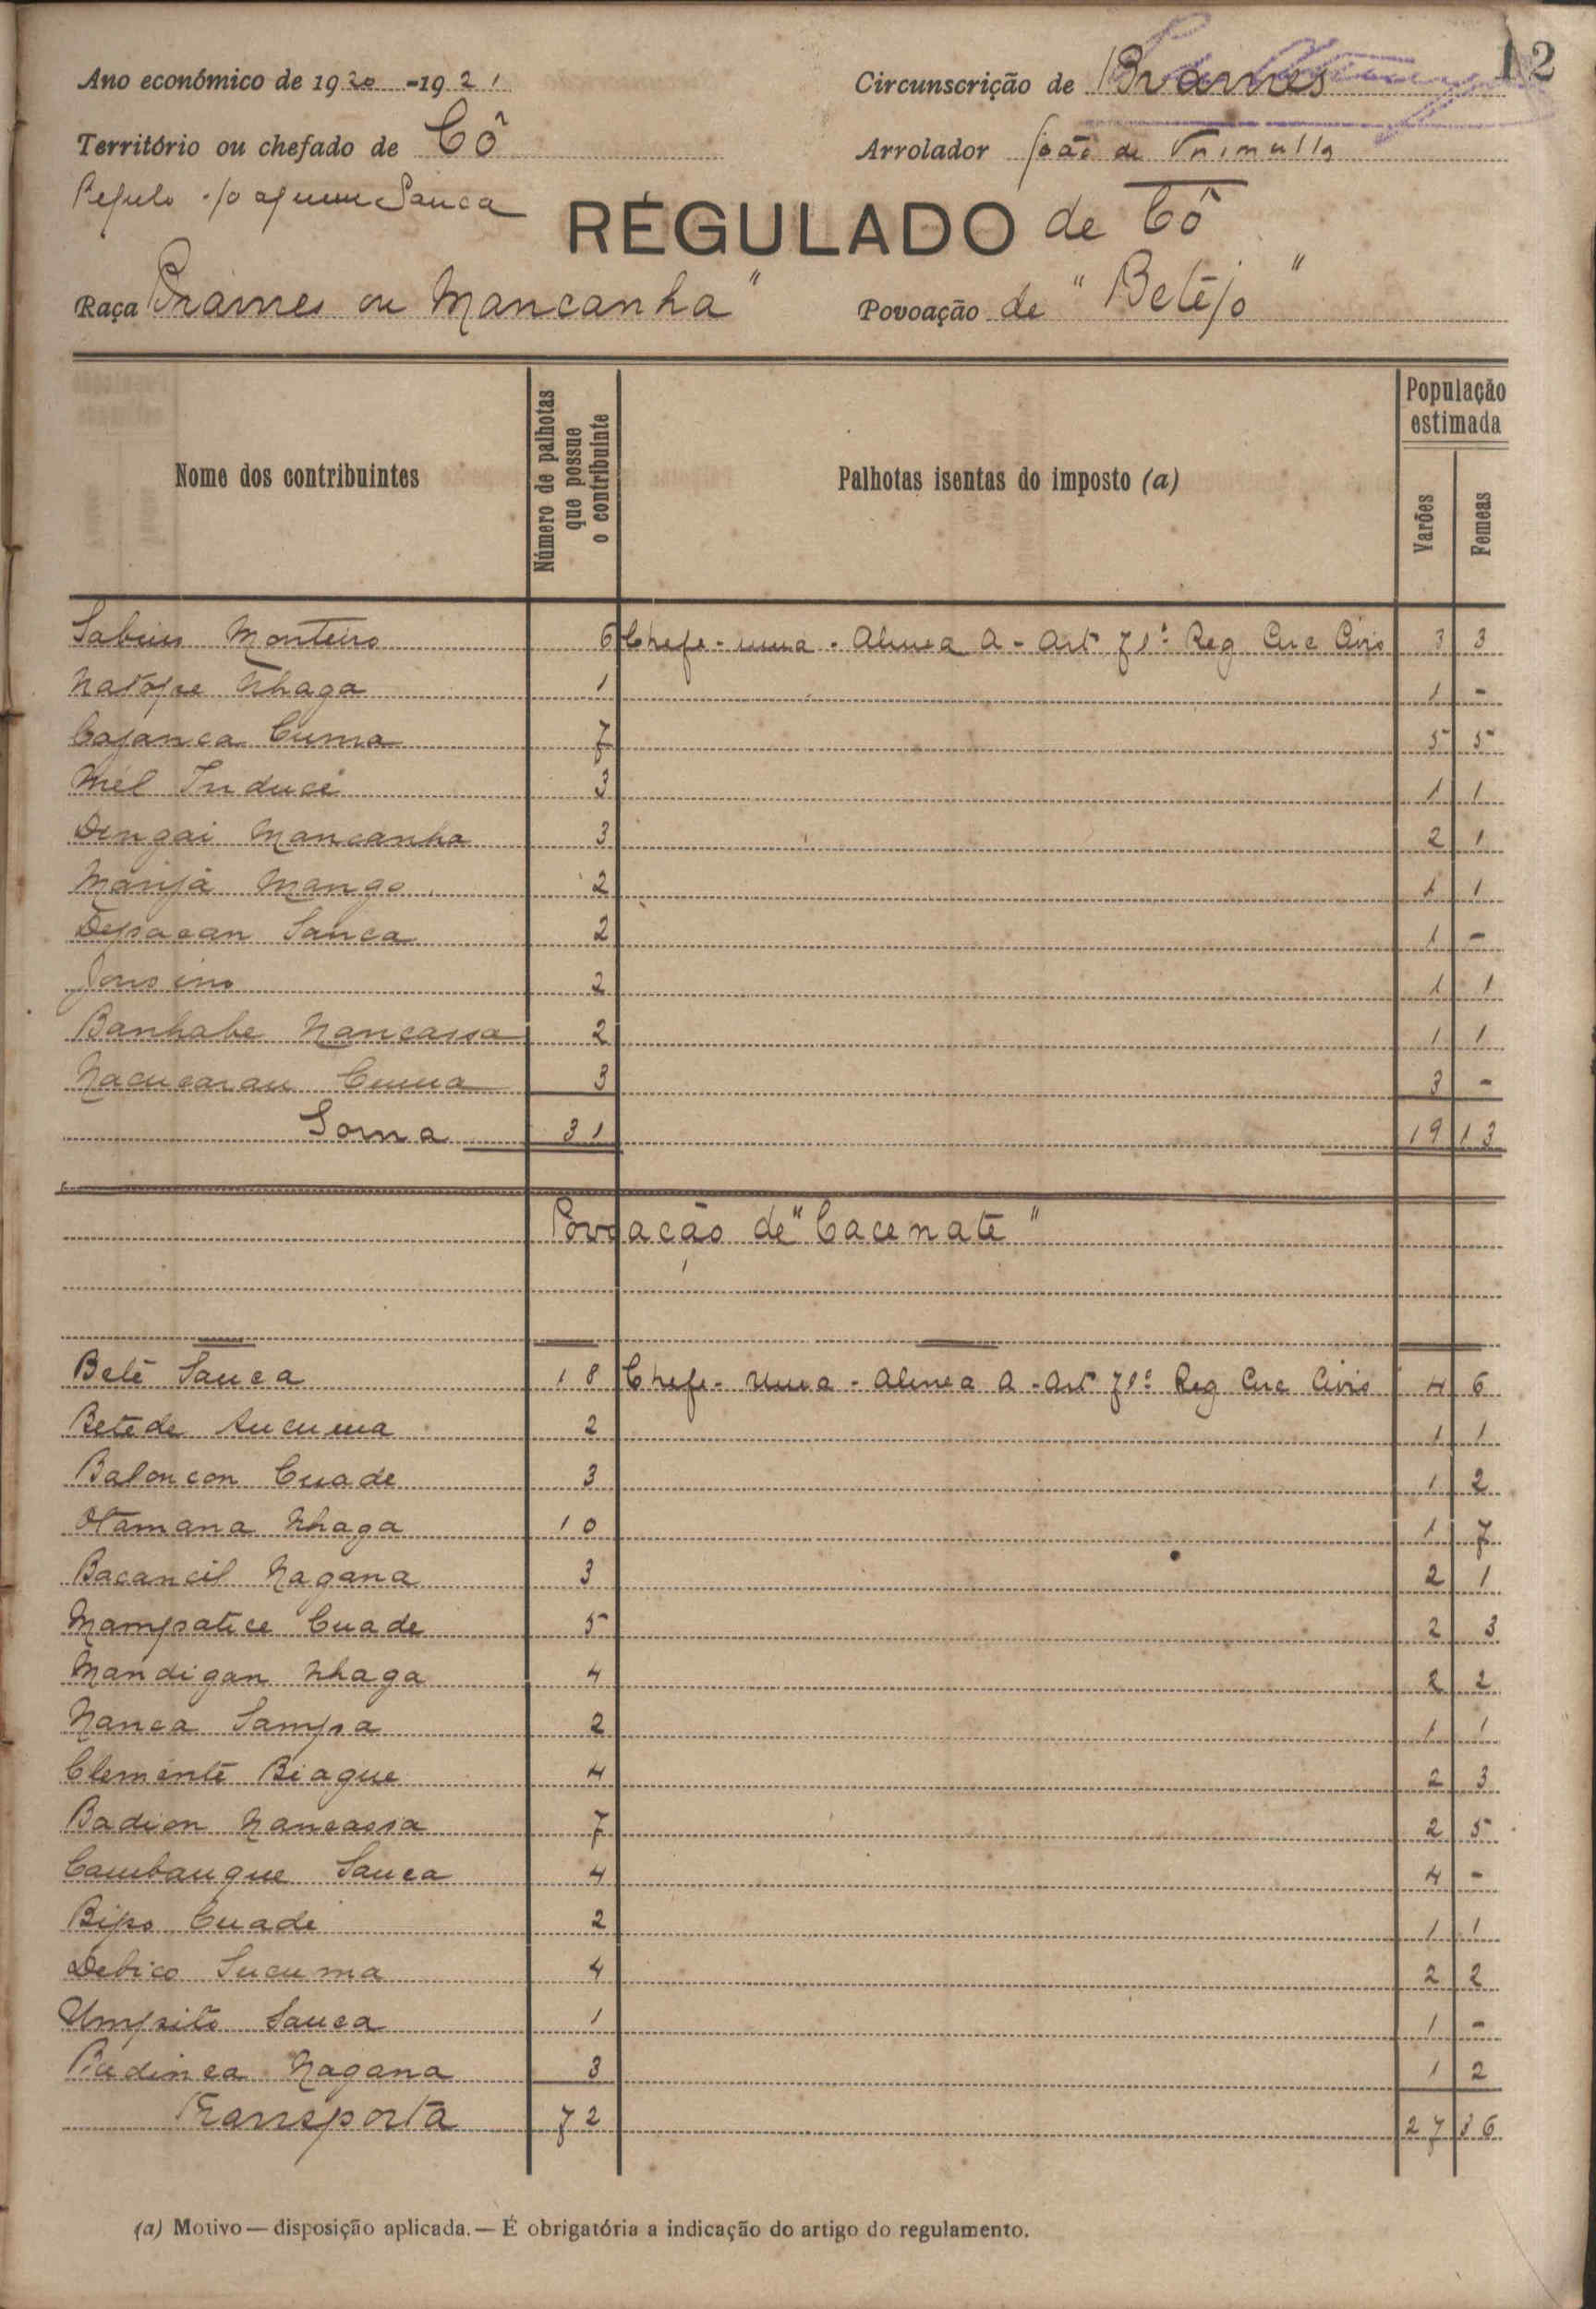 12
Ano económico de 1920-1921 Circunscrição de Brames
Território ou chefado de Cô Arrolador João de
Regulo Joaquim Sanca
REGULADO de Cô
Raça Brames ou Mancanha" Povoação de "Betêjo"
Nome dos contribuintes Número de palhotas que possue o contribuinte Palhotas isentas do imposto (a) População estimada Varões Femeas
Monteiro 6 Chefe - uma - Alinea A - Art 71º Reg Circ Civis 3 3
Nhaga 1 1 -
Cajanca Cuma 7 5 5
Mel Induce 3 1 1
Dingai Mancanha 3 2 1
Manjá Mango 2 1 1
Depacan Sanca 2 1 -
2 1 1
Banhabe Nancassa 2 1 1
Nacucarau Cuma 3 3 -
Soma 31 19 13
Povoação de "Cacenate"
Betê Sanca 18 Chefe - Uma - Alinea A - Art 71º Reg Circ Civis 4 6
Betede 2 1 1
Baloncon Cuade 3 1 2
Otamana Nhaga 10 1 7
Bacancil Nagana 3 2 1
Mampatice Cuade 5 2 3
Mandigan Nhaga 4 2 2
Nanca Sampa 2 1 1
Clemente Biague 4 2 3
Badion Nancassa 7 2 5
Cambanque Sanca 4 4 -
Bipo Cuade 2 1 1
Debico Sucuma 4 2 2
Umpito Sanca 1 1 -
Budinca Nagana 3 1 2
Transporta 72 27 36
(a) Motivo — disposição aplicada. — É obrigatória a indicação do artigo do regulamento.